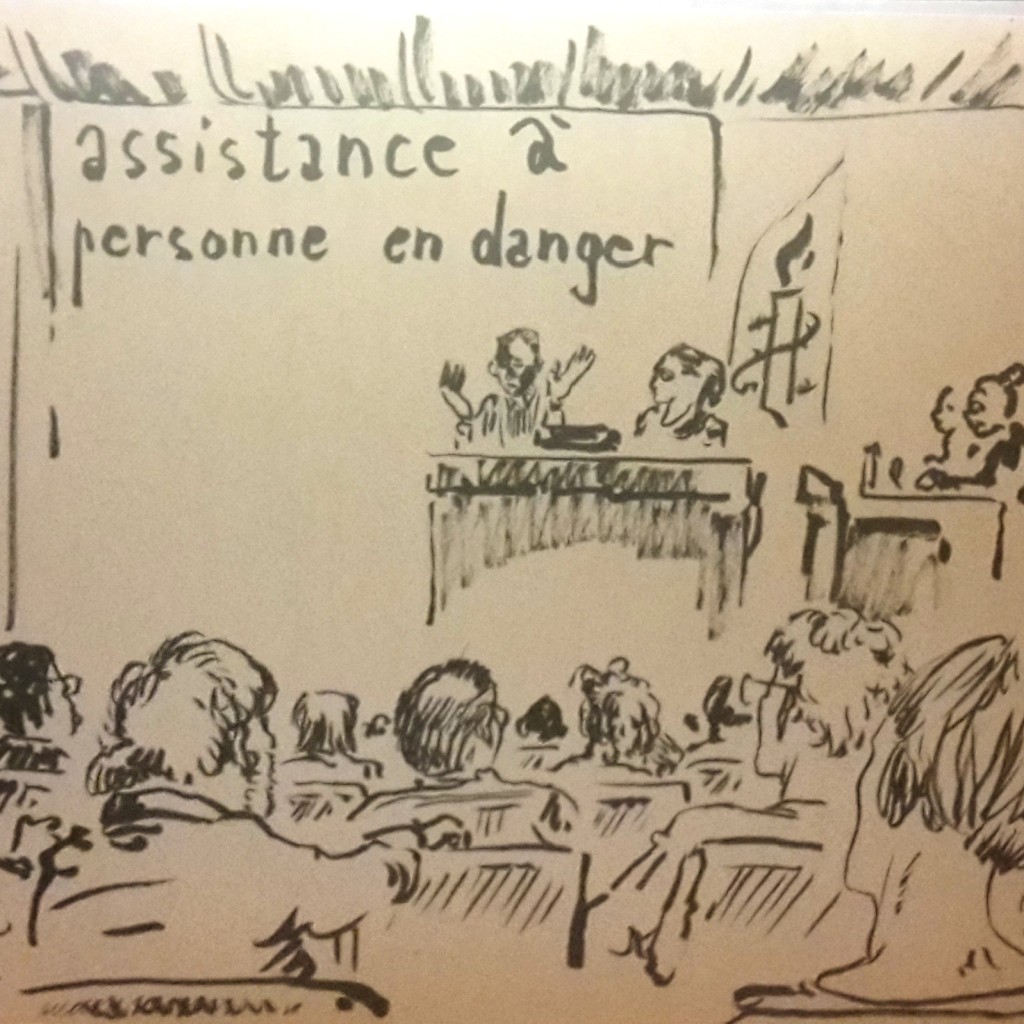 assistance à
personne en danger